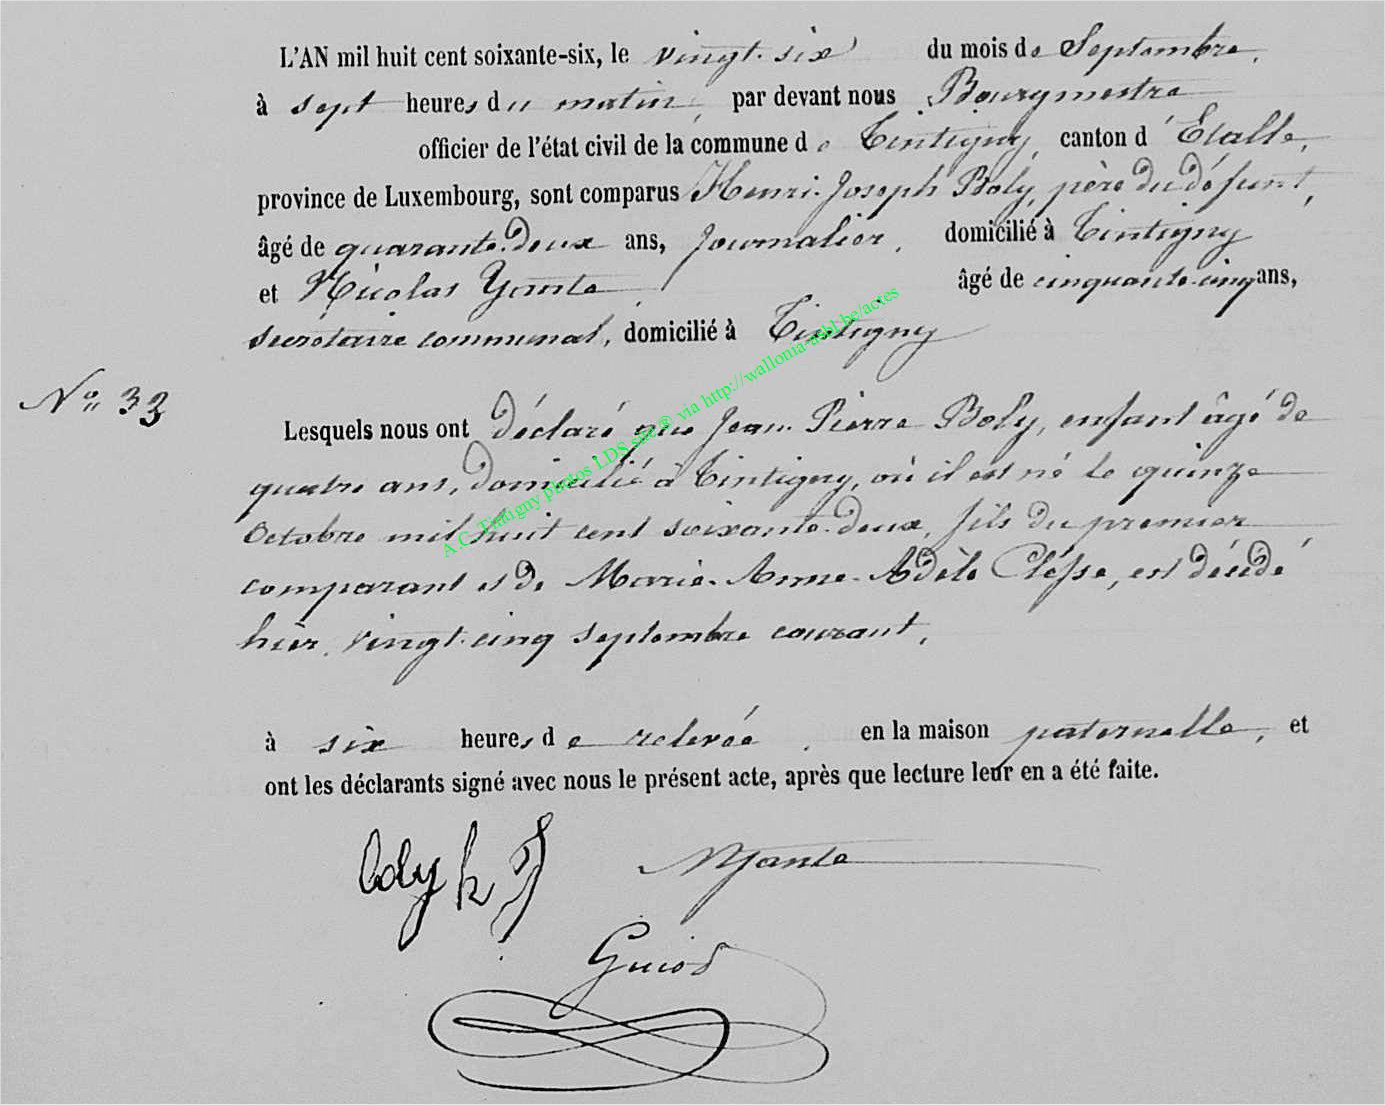 L'AN mil huit cent soixante-six, le vingt-six du mois de Septembre,
à sept heures du matin, par devant nous Bourgmestre
officier de l'état civil de la commune de Tintigny, canton d'Etalle,
province de Luxembourg, sont comparus Henri-Joseph Boly, père du défunt,
âgé de quarante-deux ans, journalier, domicilié à Tintigny
et Nicolas Yante, âgé de cinquante-cinq ans,
secrétaire communal, domicilié à Tintigny
N° 33
Lesquels nous ont déclaré que Jean-Pierre Boly, enfant âgé de
quatre ans, domicilié à Tintigny, où il est né le quinze
Octobre mil huit cent soixante-deux, fils du premier
comparant et de Marie-Anne-Adèle Clésse, est décédé
hier, vingt-cinq septembre courant,
à six heures de relevée, en la maison paternelle, et
ont les déclarants signé avec nous le présent acte, après que lecture leur en a été faite.
boly h J NYante
Guiod
A.C. Tintigny photos LDS site® via http://wallonia-asbl.be/actes